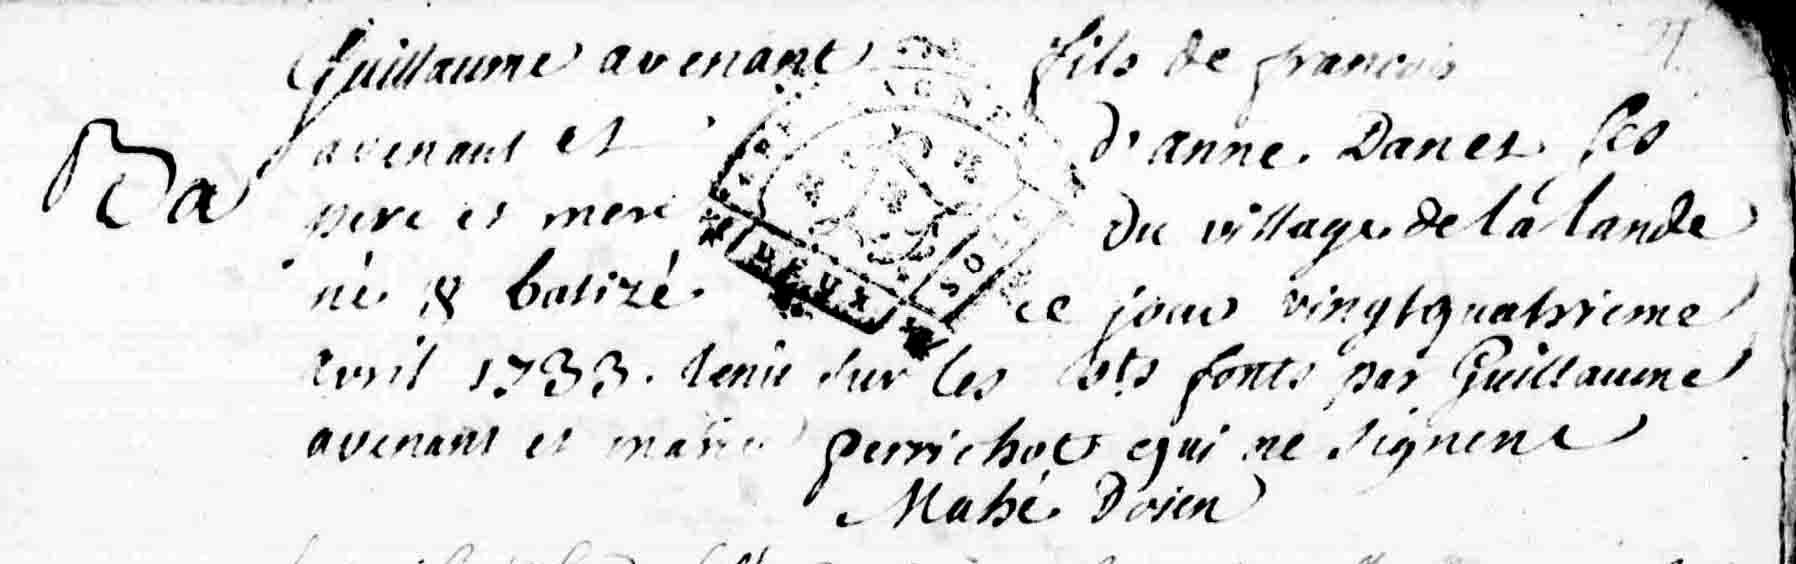 Guillaume avenant fils de francois
avenant et d'anne Danet ses
Ba
pere et mere du village de la lande
né & batizé ce jour vingtquatrieme
avril 1733. tenu sur les sts fonts par Guillaume
avenant et marie perrichot qui ne signent
Mahé Doien